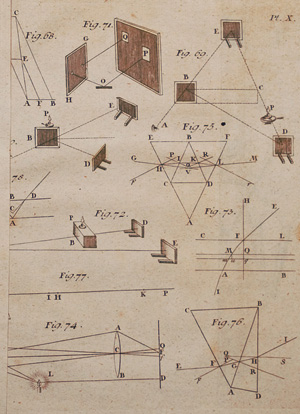 Pl. X
Fig. 68.
C
E
A F B
Fig. 71
G
Q
P
H
O
Fig. 69.
E
B
C
A
P
D
P
B
E
D
Fig. 75.
E B F
G P I K R L M
H
C D
A
78.
B D
C
A
Fig. 72.
P
B
D
E
Fig. 73.
H
E
C F L
M Q
A B
I
Fig. 77.
I H K P
Fig. 74.
A
C
B
L
D
Fig. 76.
C B
I
E F
G H
R S
A D